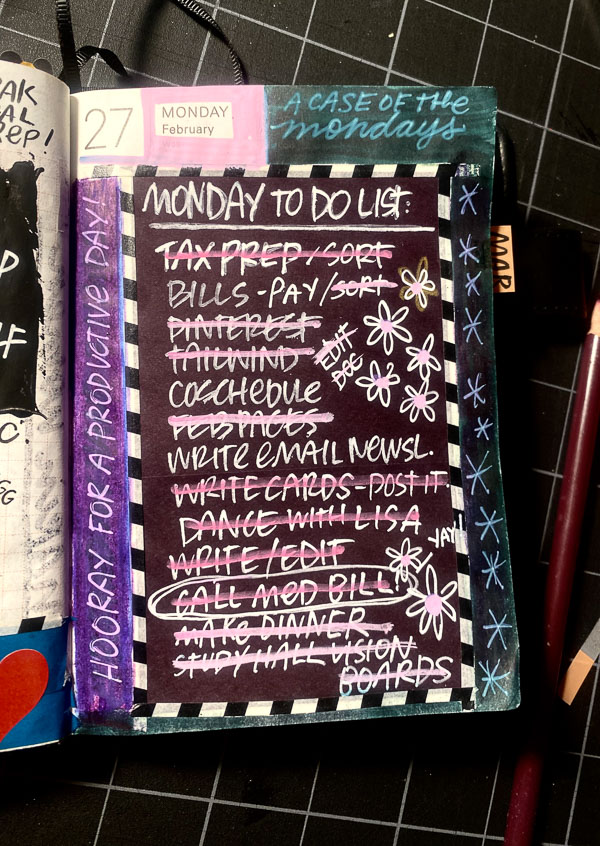 27
MONDAY
February
A CASE OF THE
mondays
HOORAY FOR A PRODUCTIVE DAY!
MONDAY TO DO LIST:
TAX PREP / SORT
BILLS - PAY / SORT
PINTEREST
TAILWIND
EDIT
DOC
COSCHEDULE
FEB PAGES
WRITE EMAIL NEWSL.
WRITE CARDS - POST IT
DANCE WITH LISA
WRITE / EDIT
YAY!
CALL MED BILL!
MAKE DINNER
STUDY HALL VISION
BOARDS
MAR